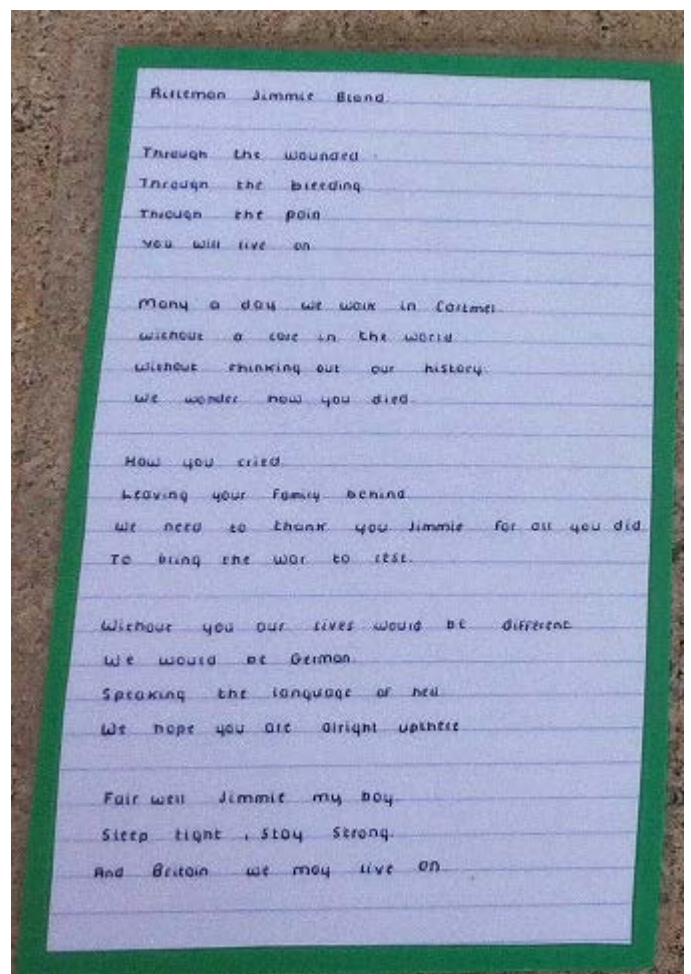 Rifleman Jimmie Bland
Through the wounded
Through the bleeding
Through the pain
You will live on
Many a day we walk in Cartmel
without a care in the world
without thinking out our history
We wonder how you died.
How you cried
Leaving your Family behind
We need to thank you Jimmie for all you did
To bring the war to rest.
Without you our lives would be different
We would be German
Speaking the language of hell
We hope you are alright upthere
Fair well Jimmie my boy
Sleep tight, Stay Strong.
And Britain we may live on